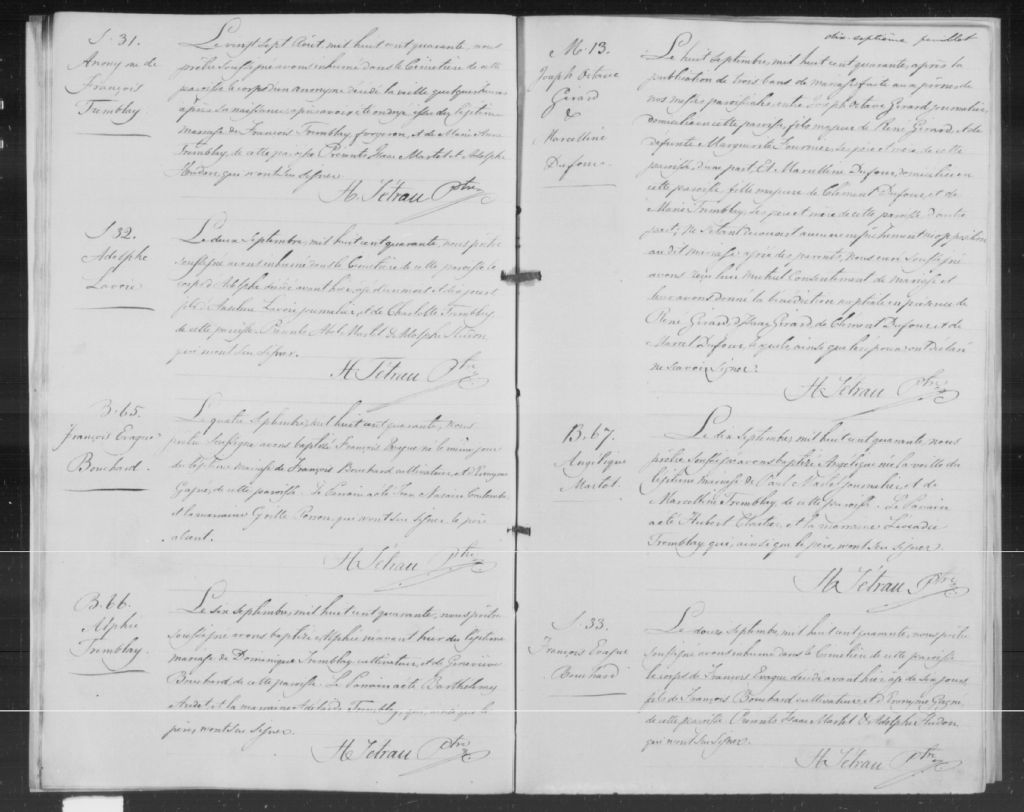 S. 31.
Anonyme de
François
Tremblay
Le vingt sept Août, mil huit cent quarante, nous
prêtre soussigné avons inhumé dans le Cimetière de cette
paroisse le corps d'un anonyme décédé la veille quelques heures
après sa naissance après avoir été ondoyé, issu du légitime
mariage de François Tremblay, forgeron, et de Marie Anne
Tremblay, de cette paroisse. Présents Isaac Martel et Adolphe
Audon qui n'ont su signer.
H. Tétrau Ptre
S. 32.
Adolphe
Lavoie
Le deux Septembre, mil huit cent quarante, nous prêtre
soussigné avons inhumé dans le Cimetière de cette paroisse le
corps d'Adolphe décédé avant hier, âgé d'un mois et dix jours
fils d'Anselme Lavoie journalier, et de Charlotte Tremblay,
de cette paroisse. Présents Abel Martel & Adolphe Audon
qui n'ont su signer.
H Tétrau Ptre
B. 65.
François Evague
Bouchard.
Le quatre Septembre, mil huit cent quarante, nous
prêtre soussigné avons baptisé François Evague né le même jour
du légitime mariage de François Bouchard cultivateur, et d'
Gagné, de cette paroisse. Le Parain a été Jean Nazaire
et la marraine qui n'ont su signer le père
absent.
H Tétrau Ptre
B. 66.
Alphée
Tremblay.
Le six Septembre, mil huit cent quarante, nous prêtre
soussigné avons baptisé Alphée né avant hier du légitime
mariage de Dominique Tremblay cultivateur, et de Geneviève
Bouchard, de cette paroisse. Le Parain a été Barthelemy
Audet et la marraine Adelaïde Tremblay, qui, ainsi que le
père, n'ont su signer.
H Tétrau Ptre
dix-septième feuillet
M. 13.
Joseph Octave
Girard
&
Marcelline
Dufour
Le huit Septembre, mil huit cent quarante, après la
publication de trois bans de mariage faite aux prônes de
nos messes paroissiales, entre Joseph Octave Girard journalier,
domicilié en cette paroisse, fils majeur de René Girard, et de
défunte Marguerite Fournier, ses père et mère de cette
paroisse, d'une part; Et Marcelline Dufour, domiciliée en
cette paroisse, fille mineure de Clément Dufour, et de
Marie Tremblay, ses père et mère de cette paroisse d'autre
part; Ne s'étant découvert aucun empêchement ni opposition
au dit mariage; des parents, Nous curé soussigné
avons reçu leur mutuel consentement de mariage et
leur avons donné la bénédiction nuptiale en présence de
René Girard, d'Isaac Girard, de Clément Dufour, et de
Marcel Dufour, lesquels ainsi que les époux, ont déclaré
ne savoir signer.
H Tétrau Ptre
B. 67.
Angelique
Martel.
Le dix Septembre, mil huit cent quarante, nous
prêtre soussigné avons baptisé Angelique née la veille du
légitime mariage de Paul Martel journalier, et de
Marcelline Tremblay, de cette paroisse. Le Parain
a été Hubert Cloutier, et la marraine Léocadie
Tremblay qui, ainsi que le père, n'ont su signer.
H Tétrau Ptre
S. 33.
François Evague
Bouchard
Le douze Septembre, mil huit cent quarante, nous prêtre
soussigné avons inhumé dans le Cimetière de cette paroisse
le corps de François Evague décédé avant hier, âgé de six jours
fils de François Bouchard cultivateur, et d' Gagné,
de cette paroisse. Présents Isaac Martel & Adolphe Audon,
qui n'ont su signer.
H Tétrau Ptre